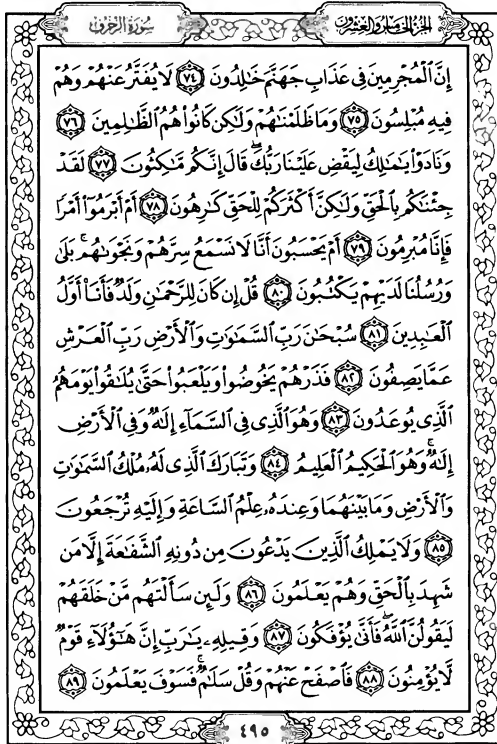 الجزء الخامس والعشرون
سورة الزخرف
إِنَّ ٱلْمُجْرِمِينَ فِى عَذَابِ جَهَنَّمَ خَٰلِدُونَ ٧٤ لَا يُفَتَّرُ عَنْهُمْ وَهُمْ
فِيهِ مُبْلِسُونَ ٧٥ وَمَا ظَلَمْنَٰهُمْ وَلَٰكِن كَانُوا۟ هُمُ ٱلظَّٰلِمِينَ ٧٦
وَنَادَوْا۟ يَٰمَٰلِكُ لِيَقْضِ عَلَيْنَا رَبُّكَ ۖ قَالَ إِنَّكُم مَّٰكِثُونَ ٧٧ لَقَدْ
جِئْنَٰكُم بِٱلْحَقِّ وَلَٰكِنَّ أَكْثَرَكُمْ لِلْحَقِّ كَٰرِهُونَ ٧٨ أَمْ أَبْرَمُوٓا۟ أَمْرًا
فَإِنَّا مُبْرِمُونَ ٧٩ أَمْ يَحْسَبُونَ أَنَّا لَا نَسْمَعُ سِرَّهُمْ وَنَجْوَىٰهُم ۚ بَلَىٰ
وَرُسُلُنَا لَدَيْهِمْ يَكْتُبُونَ ٨٠ قُلْ إِن كَانَ لِلرَّحْمَٰنِ وَلَدٌ فَأَنَا۠ أَوَّلُ
ٱلْعَٰبِدِينَ ٨١ سُبْحَٰنَ رَبِّ ٱلسَّمَٰوَٰتِ وَٱلْأَرْضِ رَبِّ ٱلْعَرْشِ
عَمَّا يَصِفُونَ ٨٢ فَذَرْهُمْ يَخُوضُوا۟ وَيَلْعَبُوا۟ حَتَّىٰ يُلَٰقُوا۟ يَوْمَهُمُ
ٱلَّذِى يُوعَدُونَ ٨٣ وَهُوَ ٱلَّذِى فِى ٱلسَّمَآءِ إِلَٰهٌ وَفِى ٱلْأَرْضِ
إِلَٰهٌ ۚ وَهُوَ ٱلْحَكِيمُ ٱلْعَلِيمُ ٨٤ وَتَبَارَكَ ٱلَّذِى لَهُۥ مُلْكُ ٱلسَّمَٰوَٰتِ
وَٱلْأَرْضِ وَمَا بَيْنَهُمَا وَعِندَهُۥ عِلْمُ ٱلسَّاعَةِ وَإِلَيْهِ تُرْجَعُونَ
٨٥ وَلَا يَمْلِكُ ٱلَّذِينَ يَدْعُونَ مِن دُونِهِ ٱلشَّفَٰعَةَ إِلَّا مَن
شَهِدَ بِٱلْحَقِّ وَهُمْ يَعْلَمُونَ ٨٦ وَلَئِن سَأَلْتَهُم مَّنْ خَلَقَهُمْ
لَيَقُولُنَّ ٱللَّهُ ۖ فَأَنَّىٰ يُؤْفَكُونَ ٨٧ وَقِيلِهِۦ يَٰرَبِّ إِنَّ هَٰٓؤُلَآءِ قَوْمٌ
لَّا يُؤْمِنُونَ ٨٨ فَٱصْفَحْ عَنْهُمْ وَقُلْ سَلَٰمٌ ۚ فَسَوْفَ يَعْلَمُونَ ٨٩
٤٩٥